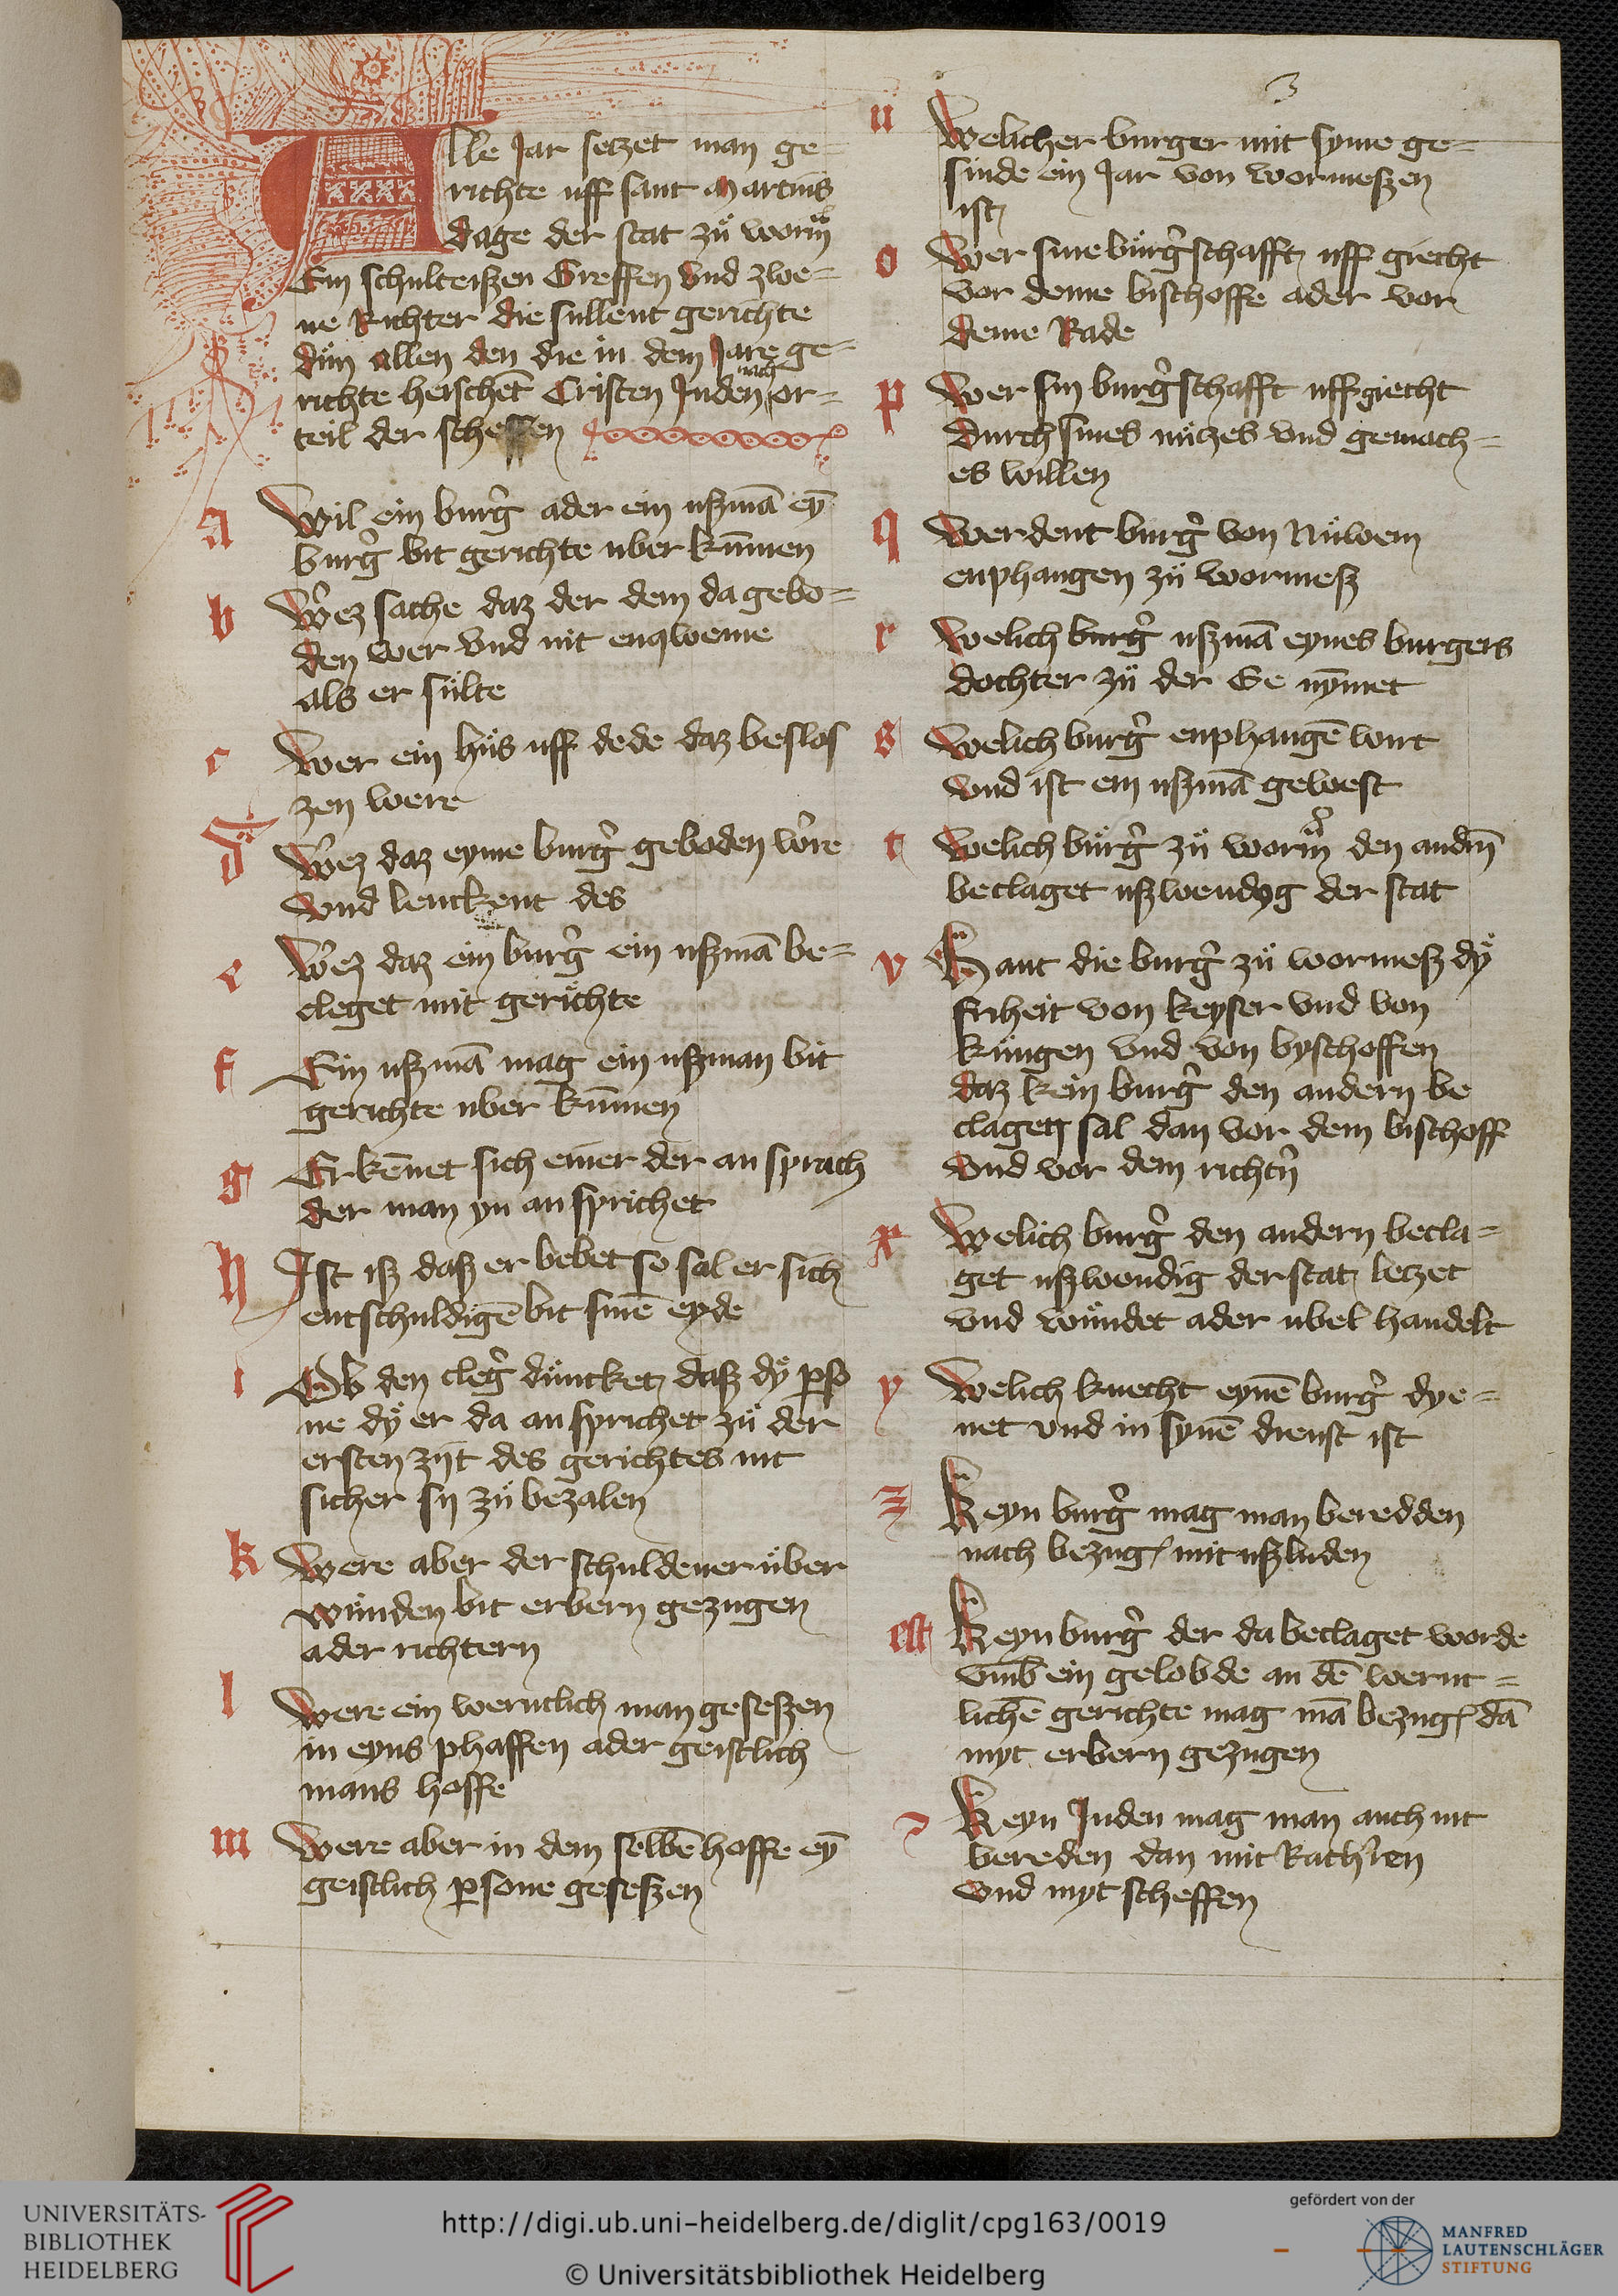 3
Alle Jar setzet man ge=
richte uff sant Martins
dage der stat zů worms
Ein schulteißen Greffen vnd zwe=
ne Richter die sullent gerichte
důn allen den die in dem Jare ge=
richte heischet Cristen Juden nach or=
teil der scheffen
a Wil ein burg̉ ader ein ußmā eȳ
burg̉ bit gerichte uber kūmen
b Wez sache daz der dem da gebo=
den wer vnd nit enqweme
als er sůlte
c Wer ein hůs uff dede daz beslos
zen were
d Wez daz eyme burg̉ geboden wr̉e
vnd lenckent des
e Wez daz ein burg̉ ein ußmā be=
cleget mit gerichte
f Ein ußmā mag ein ußman bit
gerichte uber kūmen
g Erkēnet sich einer der an sprach
der man yn an sprichet
h Ist iß daß er bebet so sal er sich
entschuldigē bit sinē eyde
i Ob den cleg̉ důncket daß dÿ p̱so
ne dÿ er da an sprichet zů der
ersten zijt des gerichtes nit
sicher sij zů bezalen
k Were aber der schuldener ůber
wůnden bit erbern gezugen
ader richtern
l Were ein werntlich man geseßen
in eyns phaffen ader geistlich
mans hoffe
m Were aber in dem selbē hoffe eȳ
geistlich p̱sone geseßen
n Welicher burger mit syme ge=
sinde ein Jar von wormeßen
ist
o Wer sine bůrg̉schafft uff giecht
vor deme bischoffe ader vor
deme Rade
p Wer sin burg̉schafft uffgiecht
durch sines nůtzes vnd gemach=
es willen
q Werdent burg̉ von Nůwem
enphangen zů wormeß
r Welich burg̉ ußmā eynes burgers
dochter zů der Ee nȳmet
s Welich burg̉ enphangē wirt
vnd ist ein ußmā gewest
t Welich bůrg̉ zů worms den andrn̄
beclaget ußwendyg der stat
v Hant die burg̉ zů wormeß dÿ
friheit von keyser vnd von
kůngen vnd von byschoffen
daz kein burg̉ den andern be
clagen sal dan vor dem bischoff
vnd vor dem richtn̉
x Welich burg̉ den andern becla=
get ußwendig der stat letzet
vnd wůndet ader ubel handelt
y Welich knecht eynē burg̉ dye=
net vnd in synē dienst ist
z Keyn burg̉ mag man beredden
nach bezug̉ mit ußluden
est Keyn burg̉ der da beclaget worde
vmb ein gelobde an dē wernt=
lichē gerichte mag mā bezug̉ dā
myt erbern gezugen
Keyn Juden mag man auch nit
bereden dan mit Rathr̉ren
vnd myt scheffen
UNIVERSITÄTS-
BIBLIOTHEK
HEIDELBERG
http://digi.ub.uni-heidelberg.de/diglit/cpg163/0019
© Universitätsbibliothek Heidelberg
gefördert von der
MANFRED
LAUTENSCHLÄGER
STIFTUNG